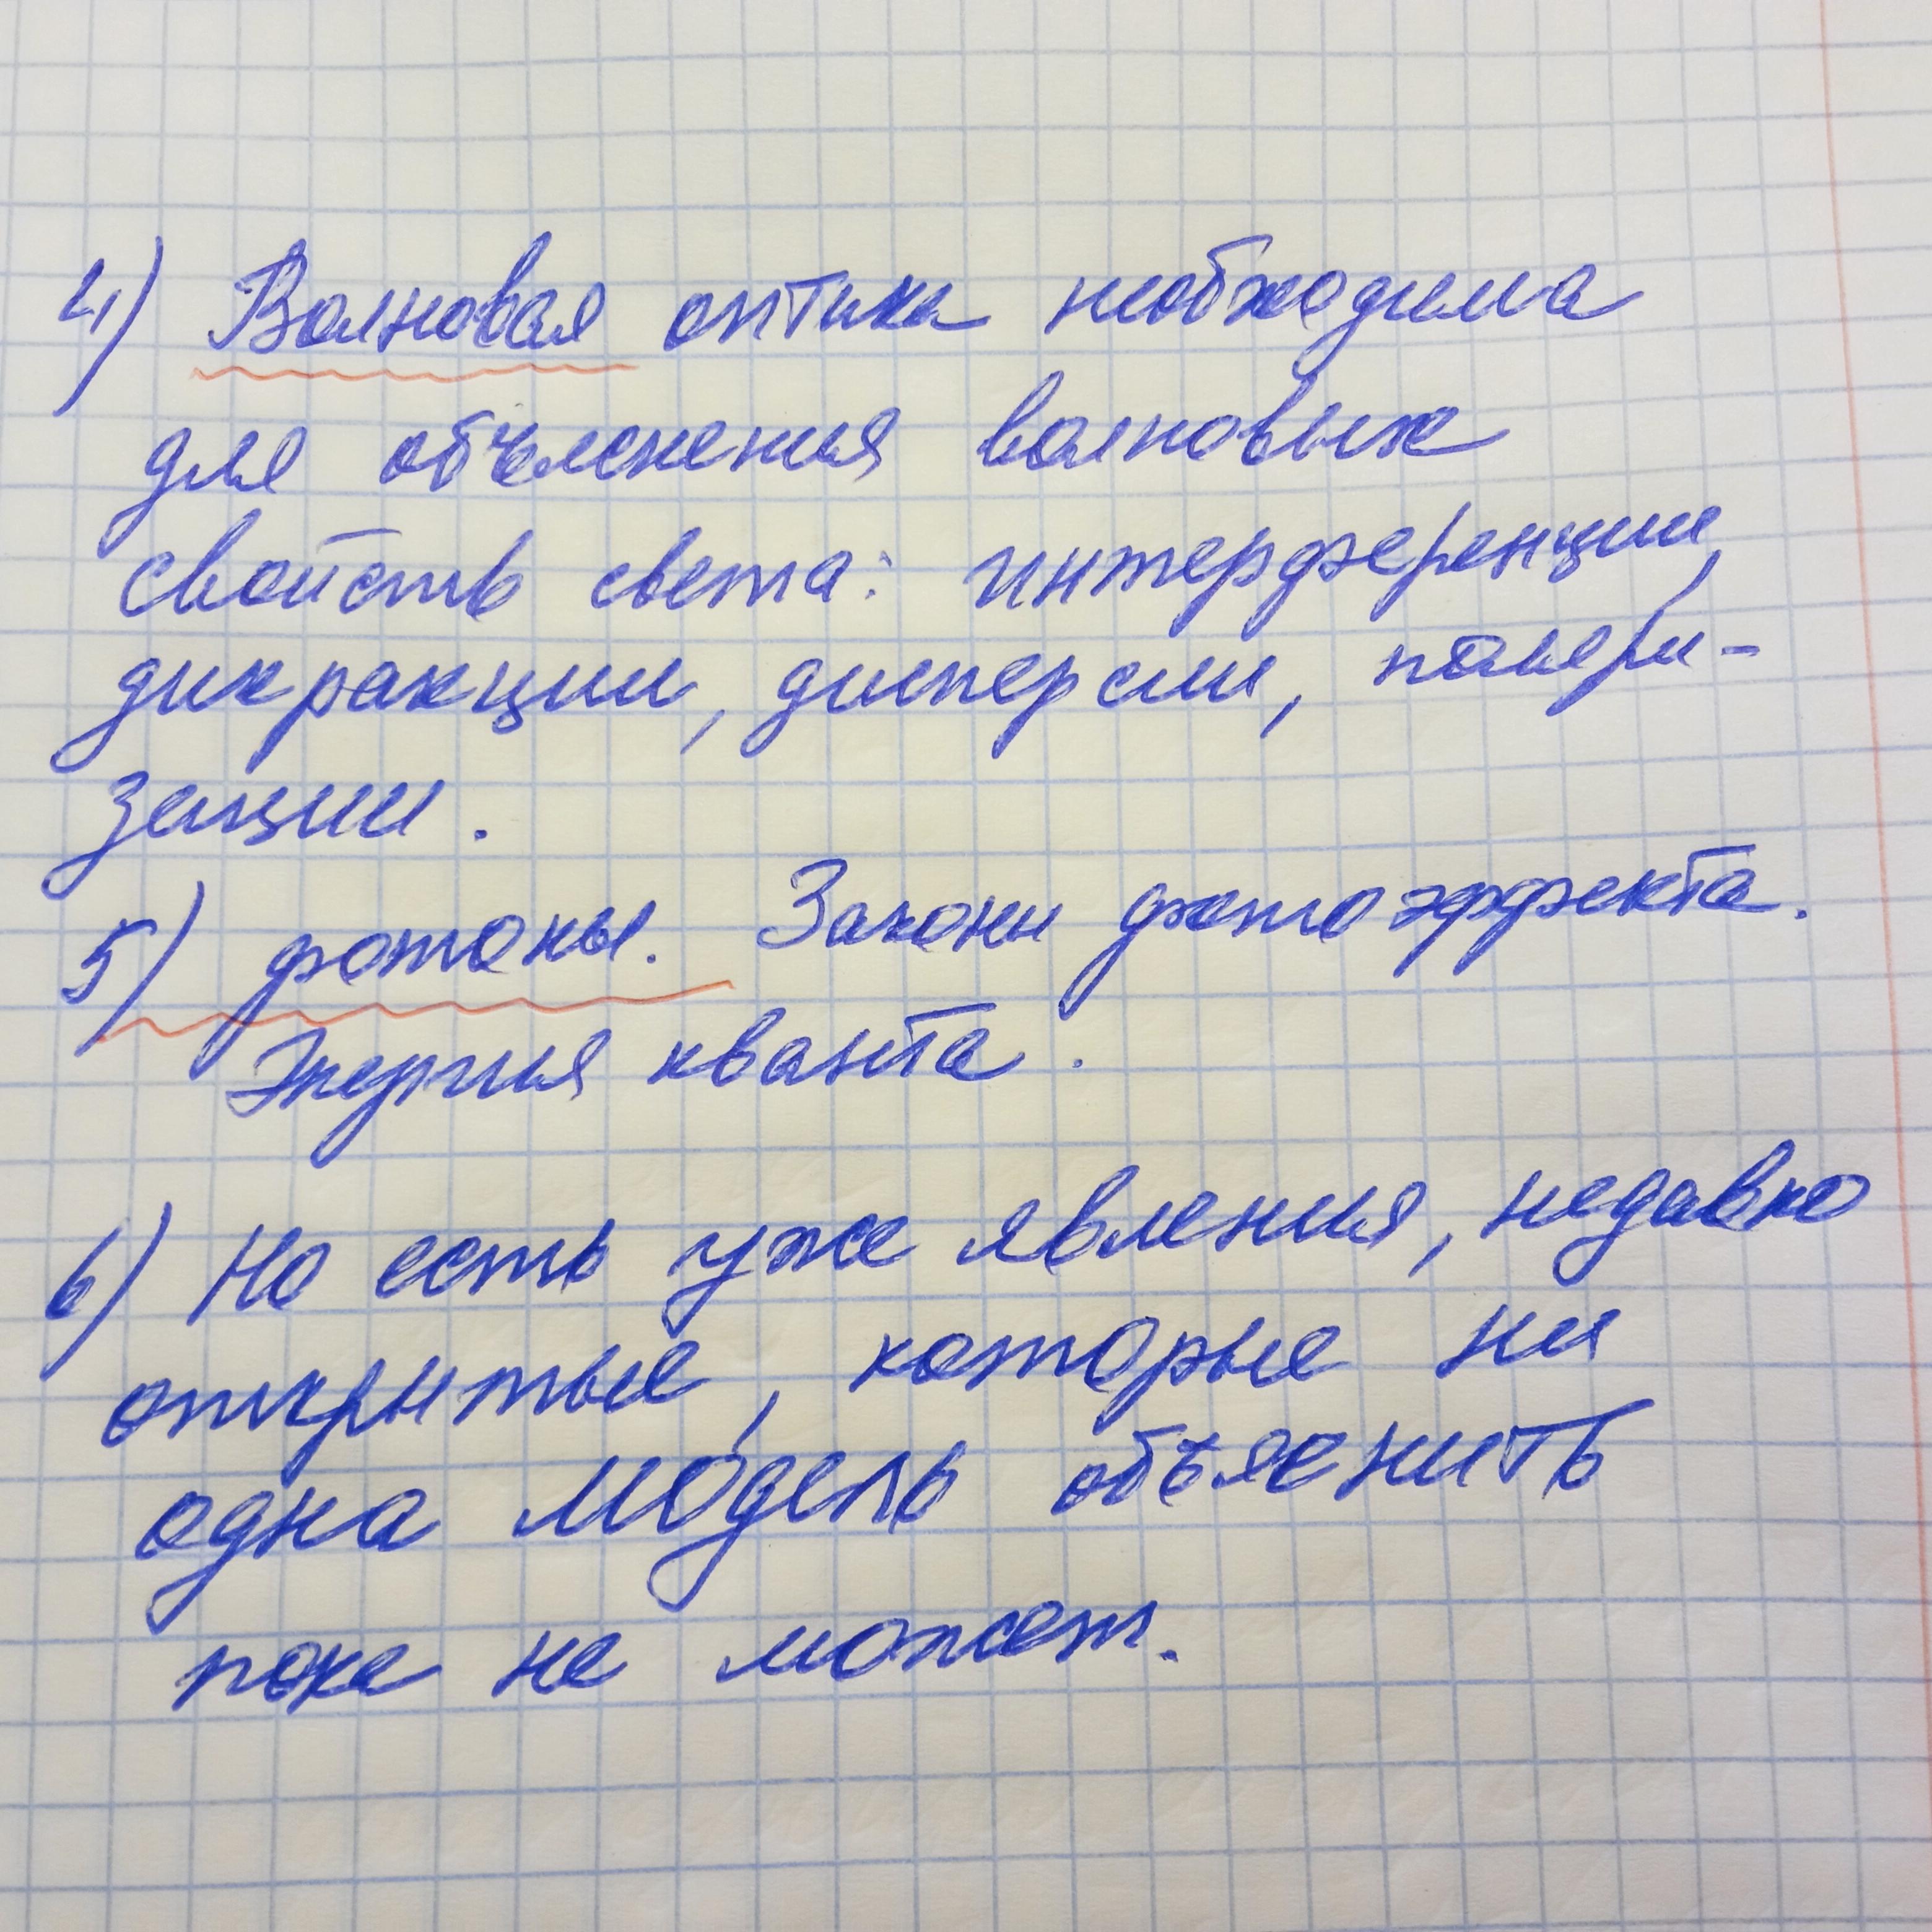 4) Волновая оптика необходима
для объяснения волновых
свойств света: интерференции,
дикракции, дисперсии, поляри-
зации.
5) фотоны. Законы фотоэффекта.
Энергия кванта.
6) Но есть уже явления, недавно
открытые, которые ни
одна модель объяснить
пока не может.